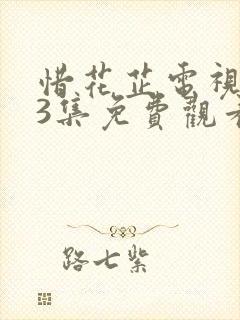 惜花芷電視
3集免費觀看
路七紫